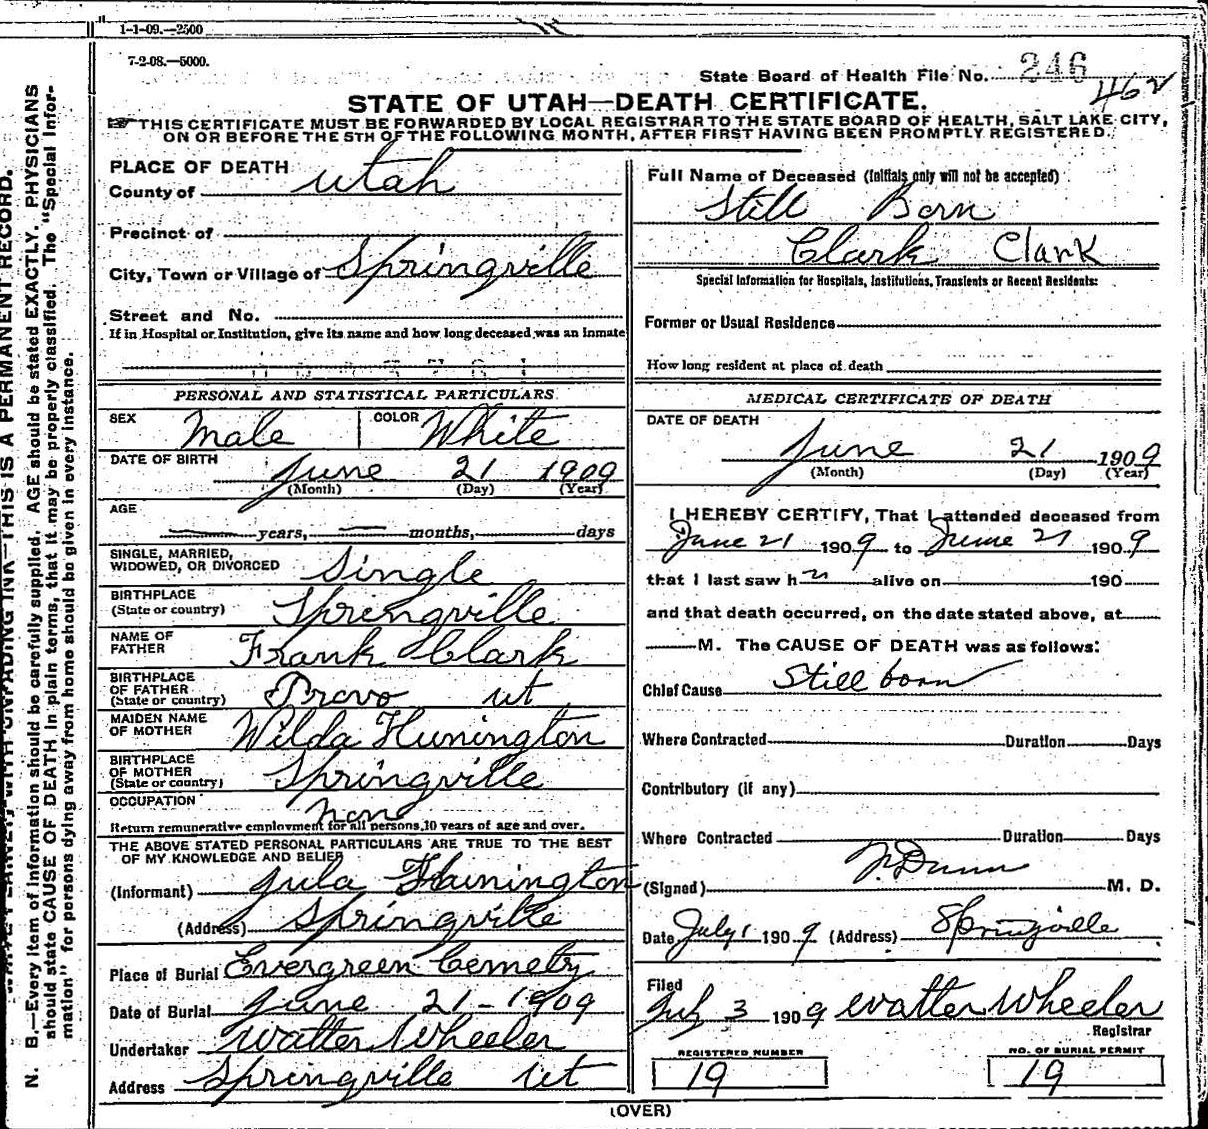 1-1-09.—2500
7-2-08.—5000.
State Board of Health File No. 246
462
STATE OF UTAH—DEATH CERTIFICATE.
THIS CERTIFICATE MUST BE FORWARDED BY LOCAL REGISTRAR TO THE STATE BOARD OF HEALTH, SALT LAKE CITY,
ON OR BEFORE THE 5TH OF THE FOLLOWING MONTH, AFTER FIRST HAVING BEEN PROMPTLY REGISTERED.
PLACE OF DEATH
County of Utah
Precinct of
City, Town or Village of Springville
Street and No.
If in Hospital or Institution, give its name and how long deceased was an inmate
PERSONAL AND STATISTICAL PARTICULARS
SEX Male COLOR White
DATE OF BIRTH
June 21 1909
(Month) (Day) (Year)
AGE
years, months, days
SINGLE, MARRIED,
WIDOWED, OR DIVORCED Single
BIRTHPLACE
(State or country) Springville
NAME OF
FATHER Frank Clark
BIRTHPLACE
OF FATHER
(State or country) Provo ut
MAIDEN NAME
OF MOTHER Wilda Hunington
BIRTHPLACE
OF MOTHER
(State or country) Springville
OCCUPATION non
Return remunerative employment for all persons 10 years of age and over.
THE ABOVE STATED PERSONAL PARTICULARS ARE TRUE TO THE BEST
OF MY KNOWLEDGE AND BELIEF
(Informant) Jula Hunington
(Address) Springville
Place of Burial Evergreen Cemetry
Date of Burial June 21-1909
Undertaker Watter Wheeler
Address Springville ut
Full Name of Deceased (Initials only will not be accepted)
Still Born
Clark Clark
Special Information for Hospitals, Institutions, Transients or Recent Residents:
Former or Usual Residence
How long resident at place of death
MEDICAL CERTIFICATE OF DEATH
DATE OF DEATH
June 21 1909
(Month) (Day) (Year)
I HEREBY CERTIFY, That I attended deceased from
June 21 1909 to June 21 1909
that I last saw h alive on 190
and that death occurred, on the date stated above, at
M. The CAUSE OF DEATH was as follows:
Chief Cause Still born
Where Contracted Duration Days
Contributory (if any)
Where Contracted Duration Days
(Signed) Dunn M. D.
Date July 1 1909 (Address) Springville
Filed
July 3 1909 Watter Wheeler
Registrar
REGISTERED NUMBER
19
NO. OF BURIAL PERMIT
19
(OVER)
THIS IS A PERMANENT RECORD.
N. B.—Every item of information should be carefully supplied. AGE should be stated EXACTLY. PHYSICIANS
should state CAUSE OF DEATH in plain terms, that it may be properly classified. The "Special Infor-
mation" for persons dying away from home should be given in every instance.